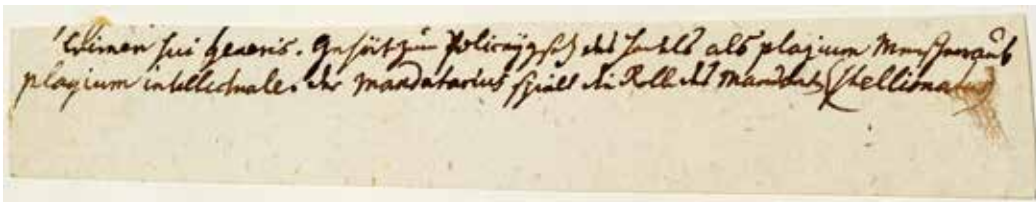 Crimen sui generis. Gehört zum Policeygesetz des Handels als plagium Menschenraub
plagium intellectuale. der Mandatarius spielt die Rolle des Mandants (Stellionatus)